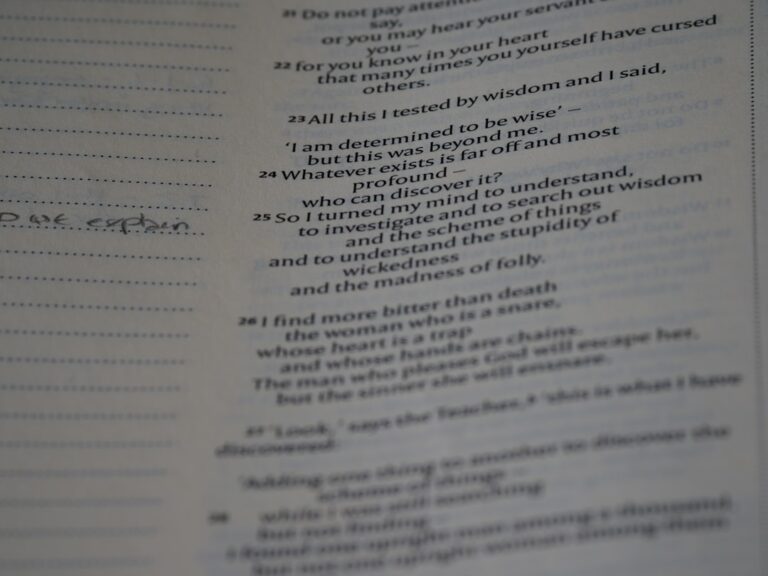 21 Do not pay
say,
or you may hear your servant
you –
22 for you know in your heart
that many times you yourself have cursed
others.
23 All this I tested by wisdom and I said,
‘I am determined to be wise’ –
but this was beyond me.
24 Whatever exists is far off and most
profound –
who can discover it?
25 So I turned my mind to understand,
to investigate and to search out wisdom
and the scheme of things
and to understand the stupidity of
wickedness
and the madness of folly.
26 I find more bitter than death
the woman who is a snare,
whose heart is a trap
and whose hands are chains.
The man who pleases God will escape her,
but the sinner she will ensnare.
27 ‘Look,’ says the Teacher, ‘this is what I have
discovered:
‘Adding one thing to another to discover the
scheme of things –
28 while I was still searching
but not finding –
I found one upright man among a thousand,
but not one upright woman among them
we explain